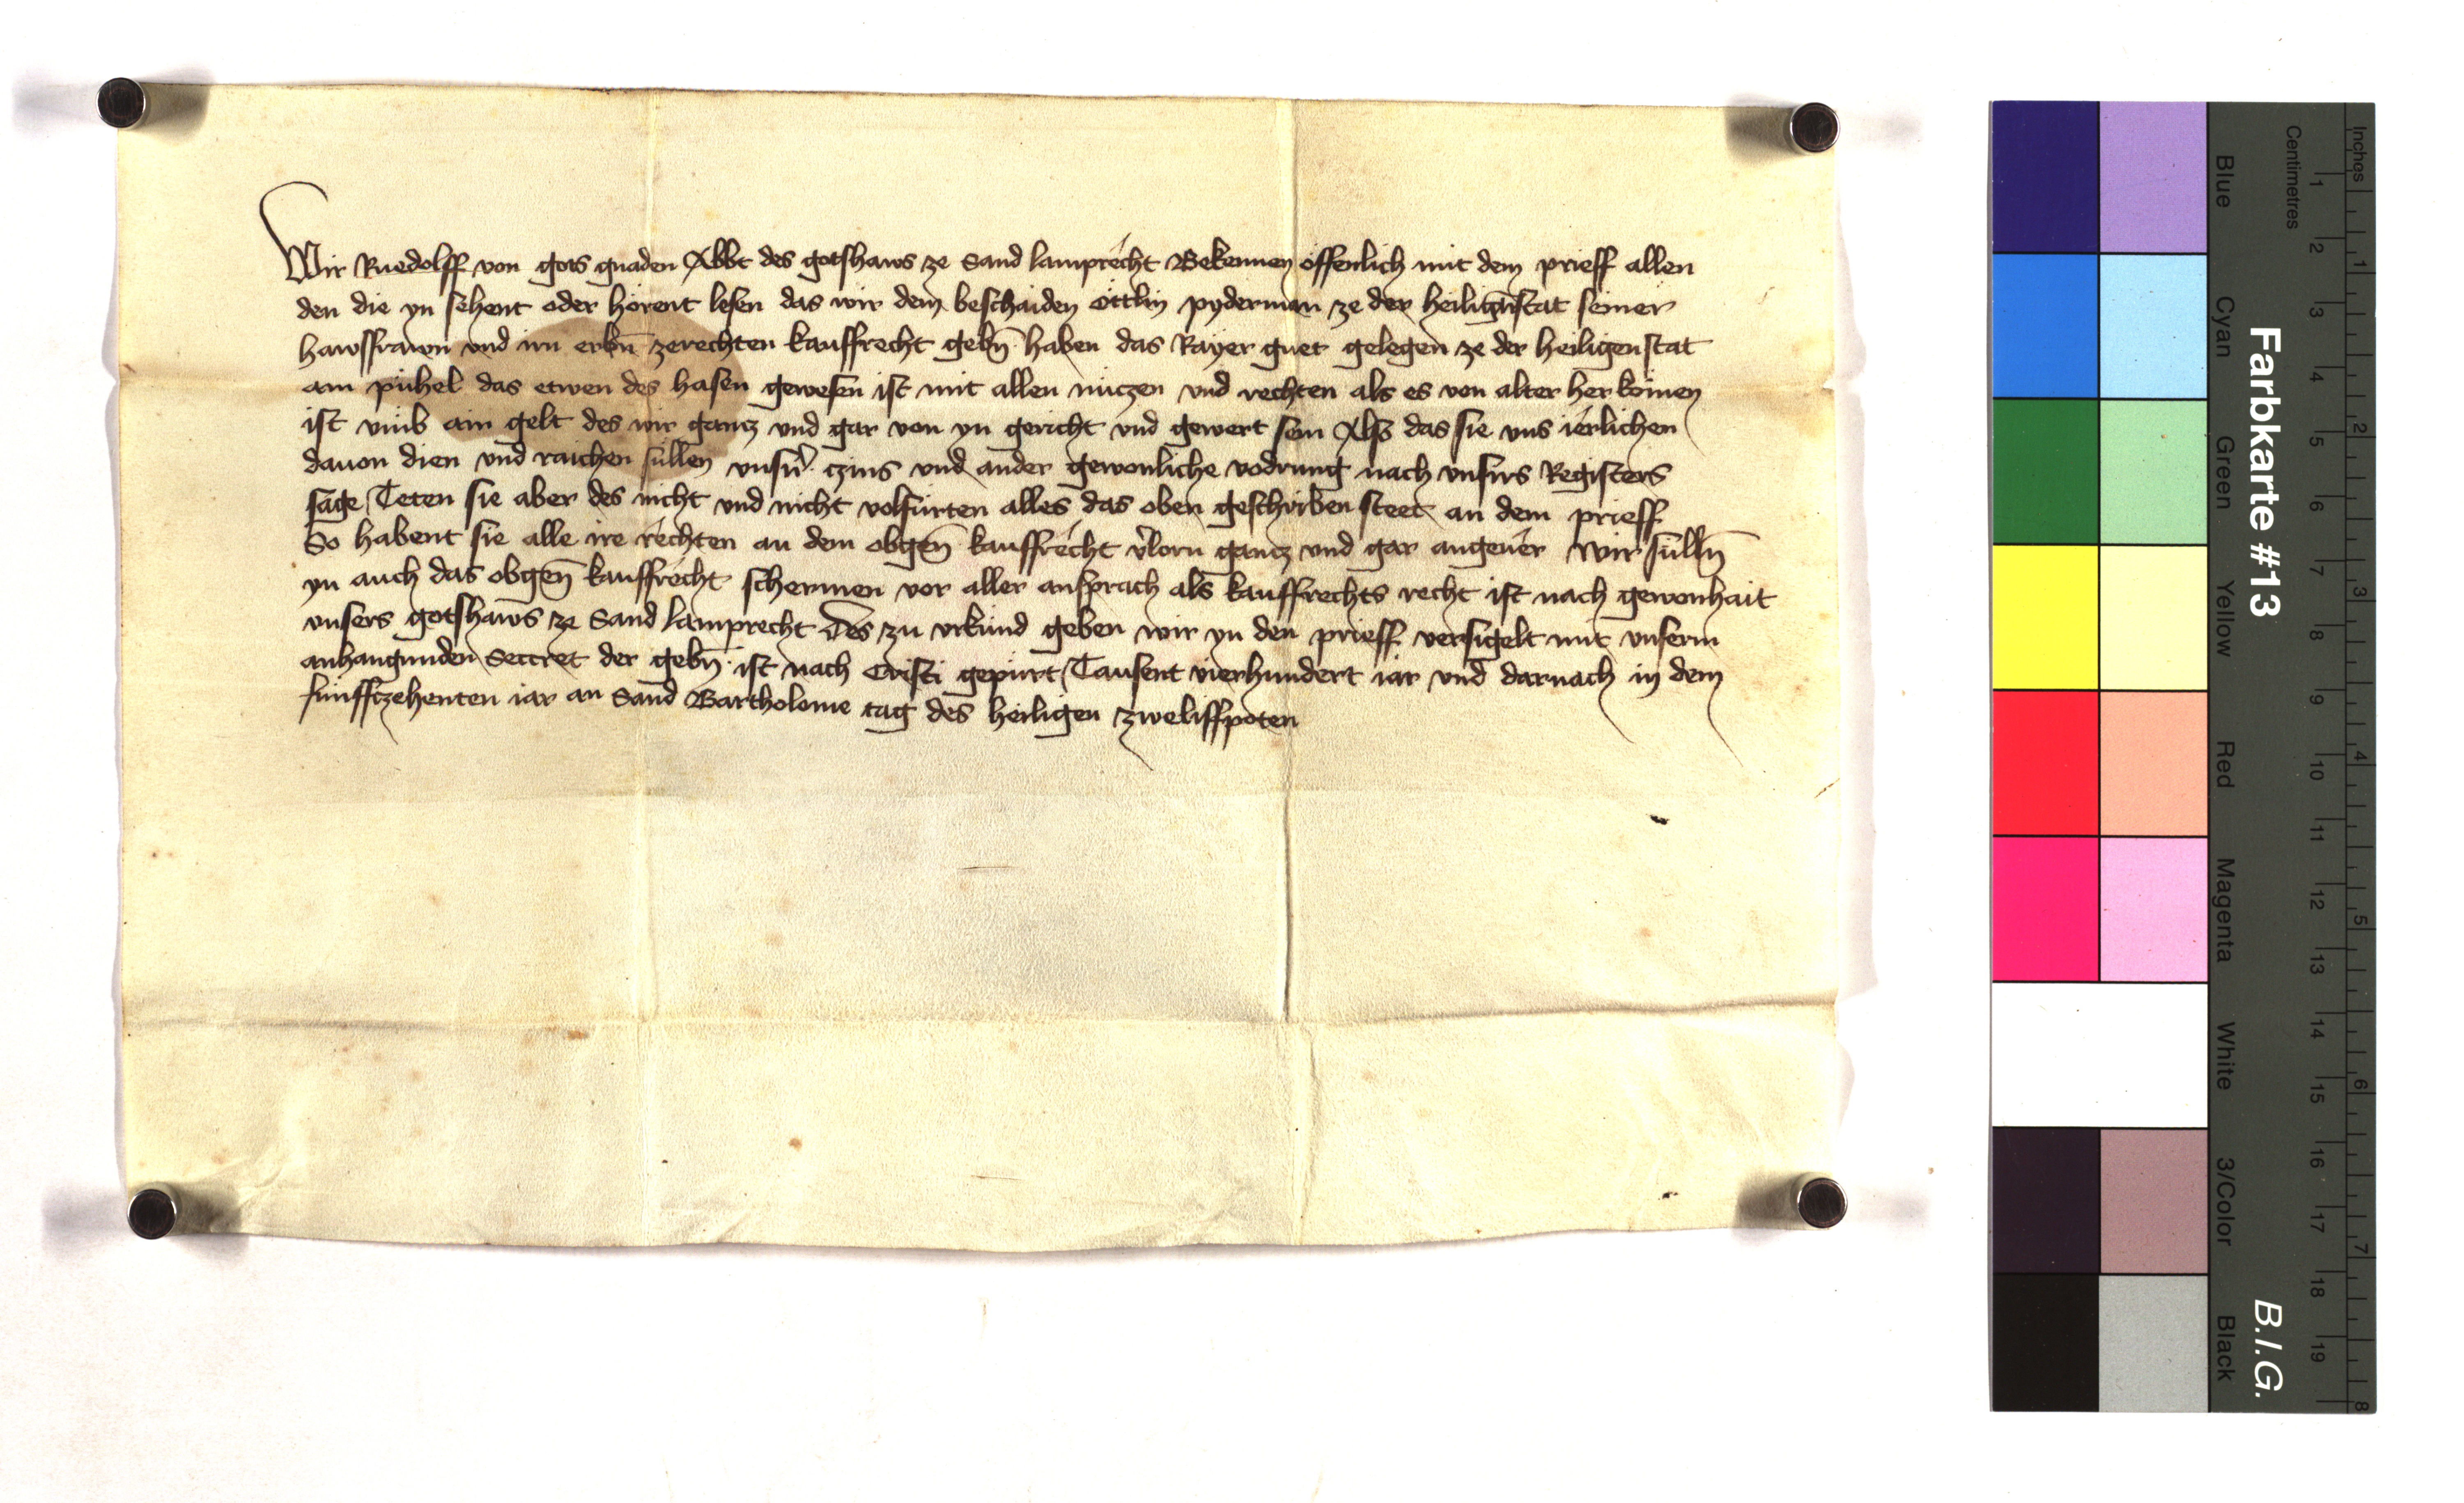 Wir Ruedolff von gots gnaden Abbt des gotshaws ze Sand lamprecht Bekennen öffenlich mit dem prieff allen
den die yn sehent oder hörent lesen das wir dem beschaiden öttlin pyderman ze der heiligñstat seiner
hawsfrawn vnd irn erbñ zerechten kauffrecht gebñ haben das Rayer guet gelegen ze der heiligenstat
am pühel das etwen des hasen gewesen ist mit allen nüczen vnd rechten als es von alter her komen
ist vmb ain gelt des wir gancz vnd gar von yn gericht vnd gewert sein Also das sie vns ierlichen
dauon dien vnd raichen süllen vnsñ czins vnd ander gewonliche vodrung nach vnsirs Registers
sage Teten sie aber des nicht vnd nicht volfürten alles das oben geschriben steet an dem prieff
So habent sie alle ire rechten an dem obgeñ kauffrecht v̓lorn gancz vnd gar angeuer Wir sülln̄
yn auch das obgeñ kauffrecht schermen vor aller ansprach als kauffrechts recht ist nach gewonhait
vnsers gotshaws ze Sand lamprecht Des zu vrkund geben wir yn den prieff versigelt mit vnserm
anhangunden Secret der gebñ ist nach Cristi gepürt Tausent vierhundert iar vnd darnach in dem
fünffczehenten iar an Sand Bartholome tag des heiligen zweliffpoten
Farbkarte #13
B.I.G.
Blue Cyan Green Yellow Red Magenta White 3/Color Black
Centimetres 1 2 3 4 5 6 7 8 9 10 11 12 13 14 15 16 17 18 19
Inches 1 2 3 4 5 6 7 8